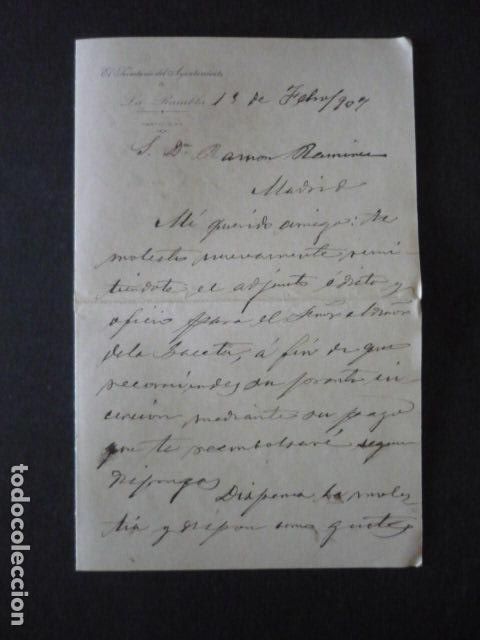 El Secretario del Ayuntamiento
de
La Rambla 13 de Febro/909
S. Dn Ramon Ramirez
Madrid
Mi querido amigo: Te
molesto nuevamente remi
tiendote el adjunto edicto y
oficio para el Señor
de la Gaceta, á fin de que
recomiendes su pronta in
cercion, mediante su pago
que te reembolsaré segun
dispongas
Dispensa la moles
tia y dispon como gustes
todocoleccion.net